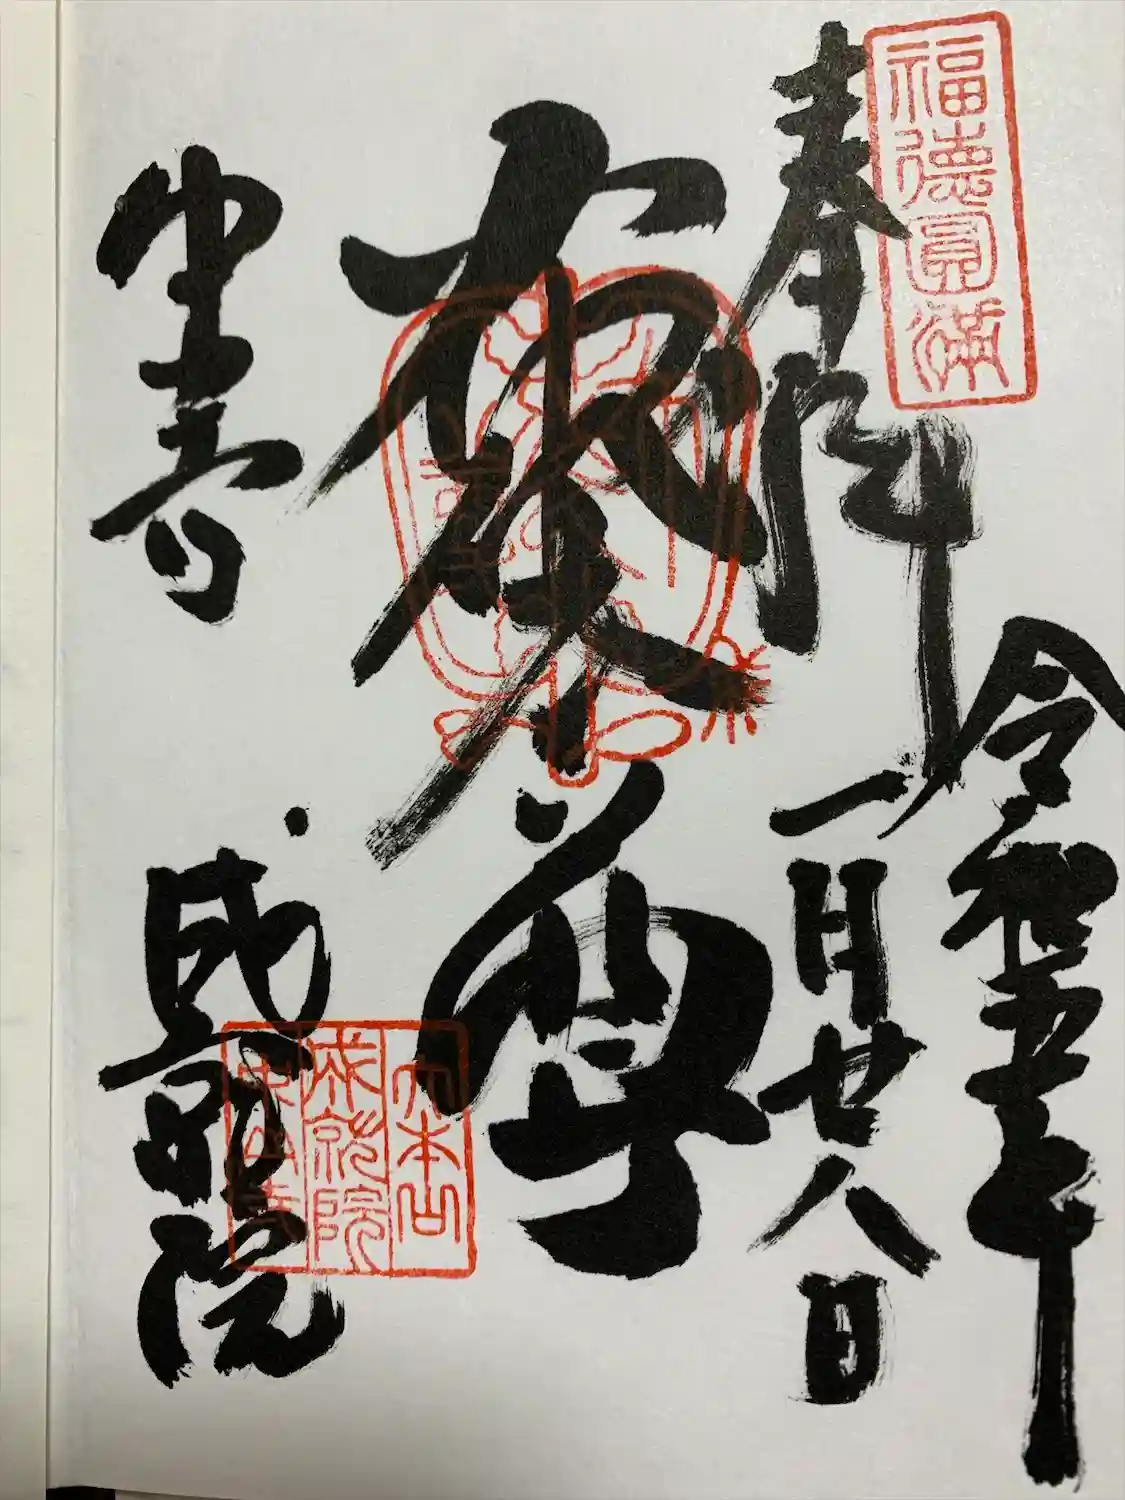 福徳圓満
奉拝
令和五年
一月廿八日
布袋尊
中山寺
成就院
大本山
成就院
中山寺